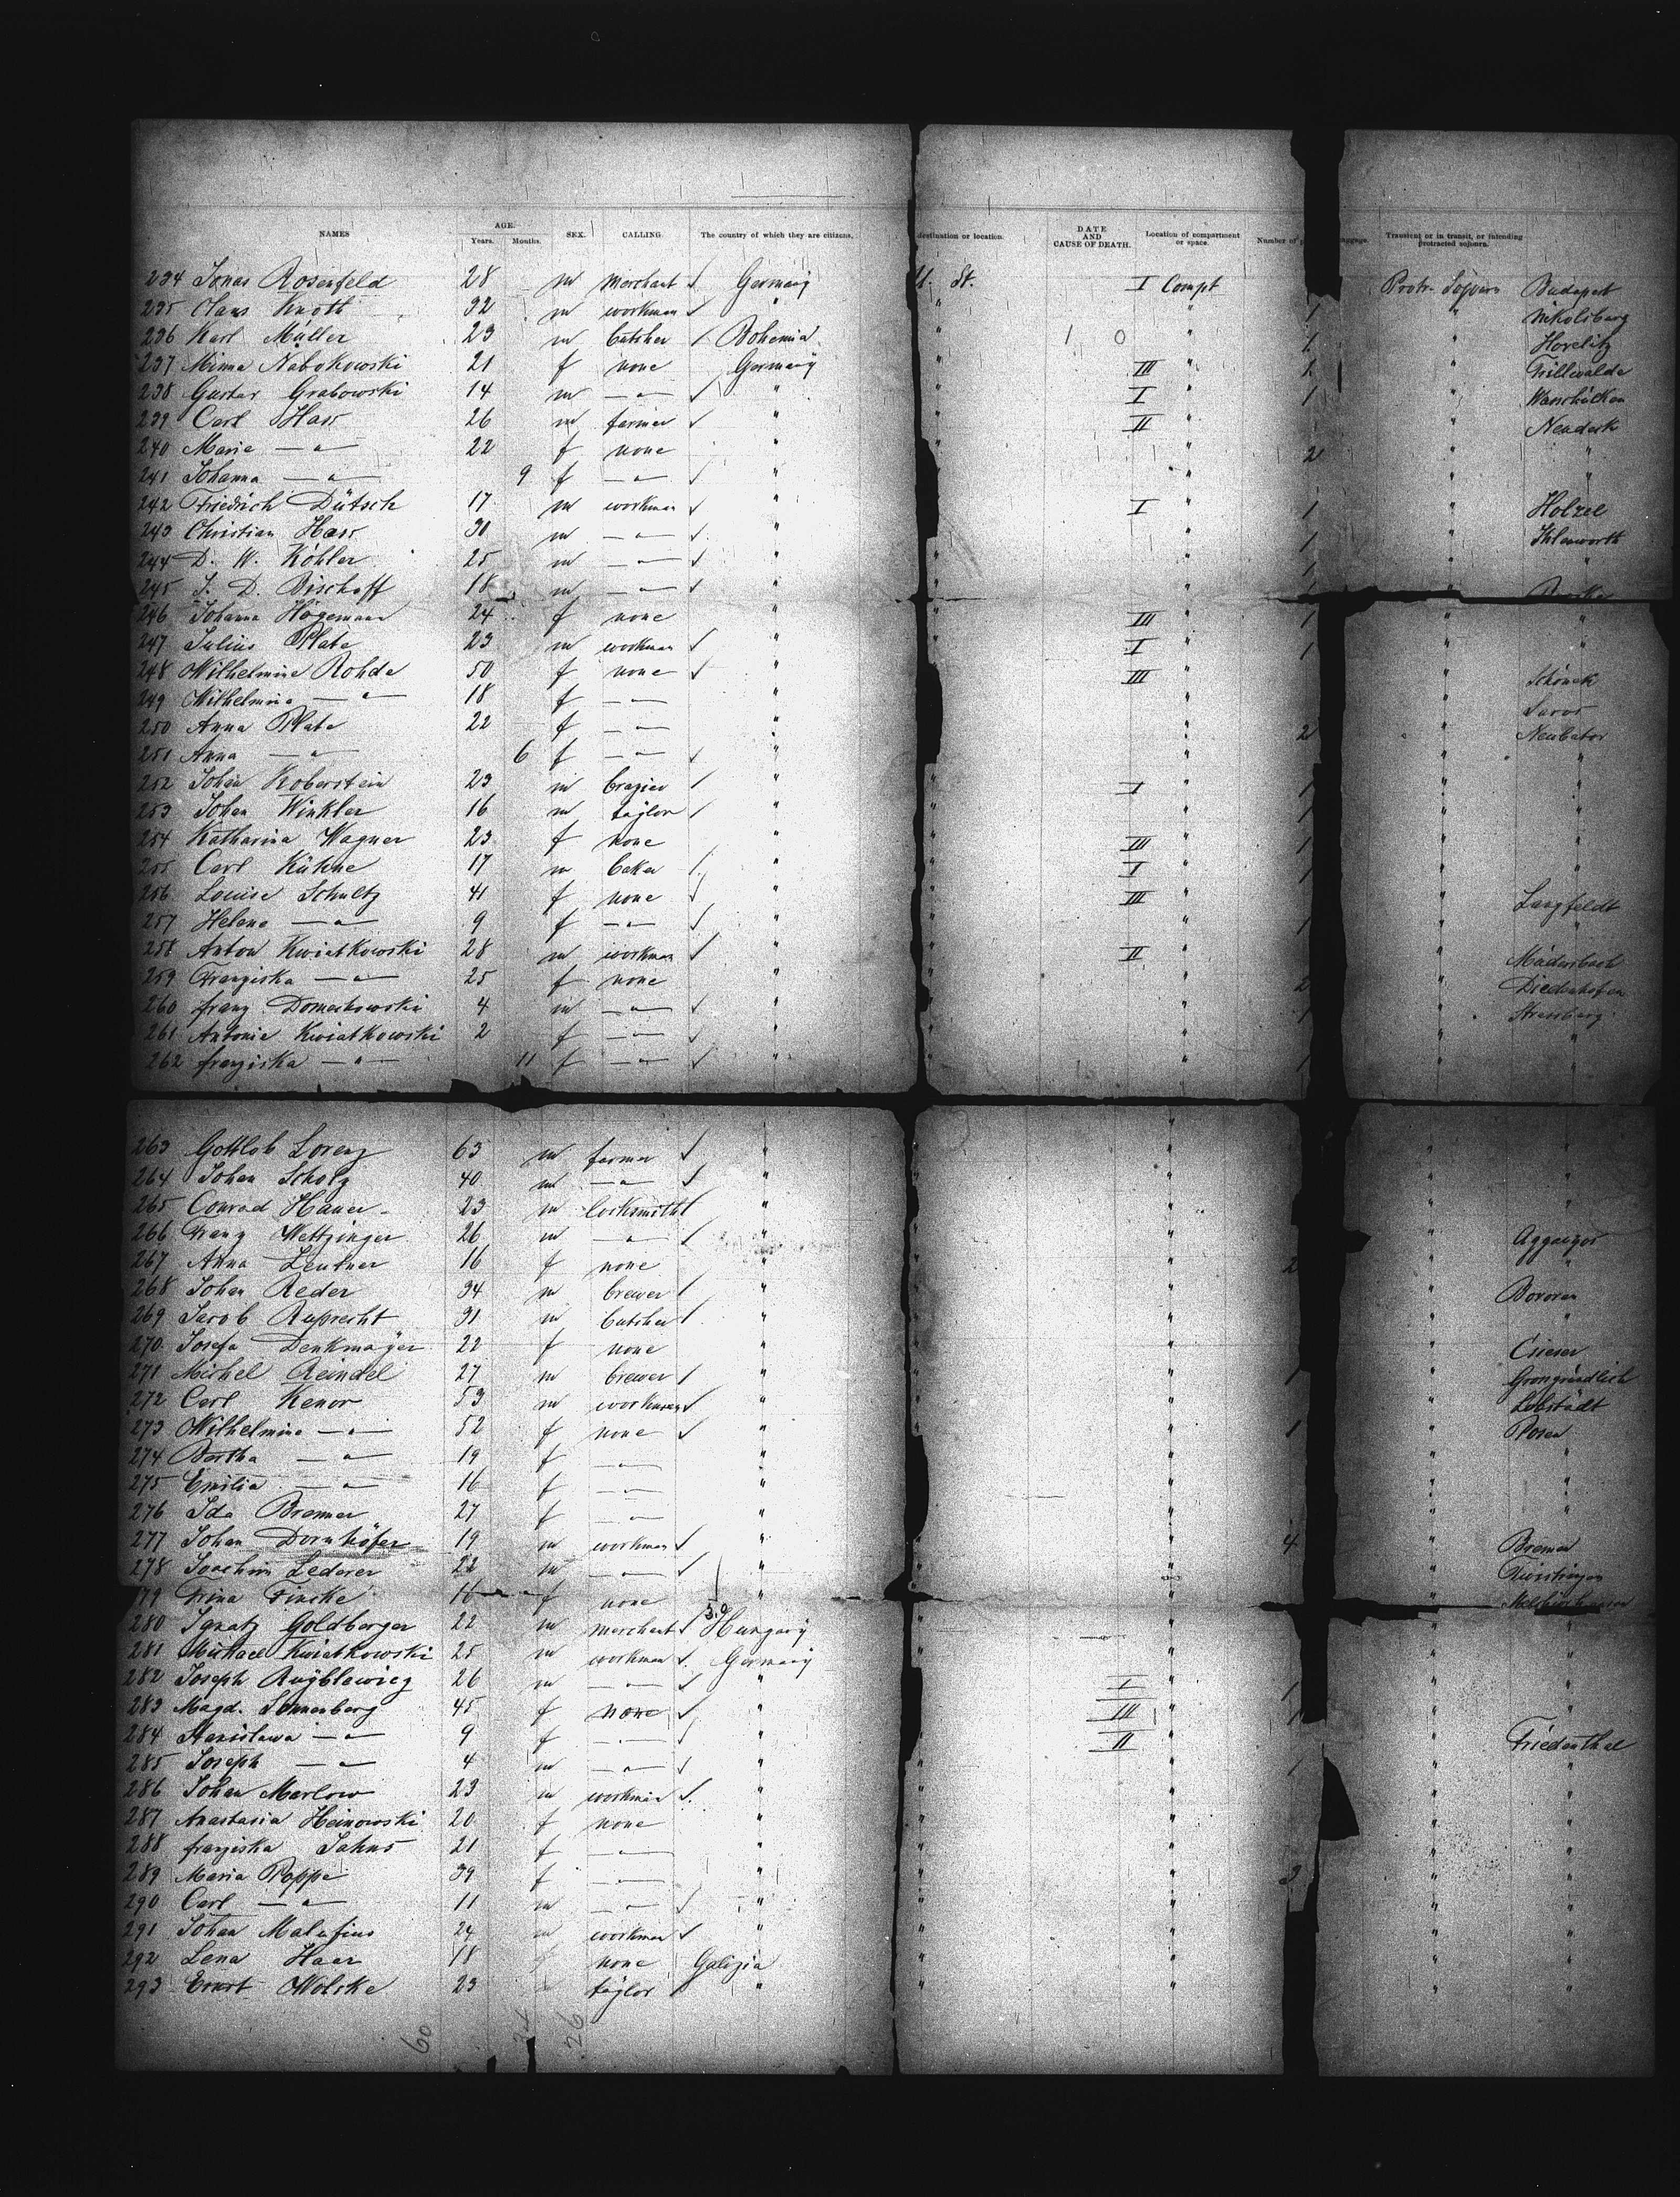 NAMES AGE. Years. Months. SEX. CALLING. The country of which they are citizens. destination or location. DATE AND CAUSE OF DEATH. Location of compartment or space. Number of Transient or in transit, or intending protracted sojourn.
234 Jonas Rosenfeld 28 m merchant ✓ Germany U. St. I Compt Protr. Sojourn Budapest
235 Claus Knoth 32 m workman ✓ " " " 1 " Nikolsburg
236 Karl Müller 23 m butcher ✓ Bohemia " 1 0 " 1 " Horelitz
237 Minna Nabokowski 21 f none Germany " III " 2 " Trillwalde
238 Gustav Grabowski 14 m —"— ✓ " " I " 1 "
239 Carl Hass 26 m farmer ✓ " " II " " Neudeck
240 Marie —"— 22 f none " " " 2 " "
241 Johanna —"— 9 f —"— ✓ " " " " "
242 Friedrich Dütsch 17 m workman ✓ " " I " 1 " Holzel
243 Christian Hass 30 m —"— ✓ " " " 1 " Ihlenworth
244 D. W. Köhler 25 m —"— ✓ " " " 1 " "
245 J. D. Bischoff 18 m —"— ✓ " " " "
246 Johanna Högemann 24 f none " " III " 1 " "
247 Julius Plate 23 m workman ✓ " " I " 1 " "
248 Wilhelmine Rohde 50 f none ✓ " " III " " Schöneck
249 Wilhelmine —"— 18 f —"— " " " "
250 Anna Plate 22 f —"— " " " 2 " Neubator
251 Anna —"— 6 f —"— ✓ " " " " "
252 Johan Koberstein 23 m brazier ✓ " " I " 1 " "
253 Johan Winkler 16 m taylor ✓ " " " 1 " "
254 Katharina Wagner 23 f none " " III " 1 " "
255 Carl Kühne 17 m baker ✓ " " I " 1 " "
256 Louise Schultz 41 f none ✓ " " III " " Langfeldt
257 Helene —"— 9 f —"— ✓ " " " 1 " "
258 Anton Kwiatkowski 28 m workman ✓ " " II " "
259 Franziska —"— 25 f none " " " 2 " Diedenhofen
260 franz Domachowski 4 m —"— ✓ " " " 1 " Strassburg
261 Antonie Kwiatkowski 2 f —"— ✓ " " " " "
262 franziska —"— 11 f —"— ✓ " " " 1 " "
263 Gottlob Lorenz 63 m farmer ✓ " " " "
264 Johan Scholz 40 m —"— ✓ " " " " "
265 Conrad Hauer 23 m locksmith ✓ " " " " "
266 Franz Wettzinger 26 m —"— ✓ " " " "
267 Anna Leutner 16 f none " " " 2 " "
268 Johan Reder 34 m brewer ✓ " " " "
269 Jacob Ruprecht 31 m butcher ✓ " " " " "
270 Josefa Denkmayer 22 f none " " " "
271 Michel Reindel 27 m brewer ✓ " " " 1 " Grongründlich
272 Carl Kenor 53 m workman ✓ " " " " Lobstädt
273 Wilhelmine —"— 52 f none ✓ " " " 1 " Posen
274 Bertha —"— 19 f —"— " " " " "
275 Emilia —"— 16 f —"— " " " " "
276 Ida Bremer 27 f —"— " " " " "
277 Johan Dornhöfer 19 m workman ✓ " " " 4 " Bremen
278 Joachim Lederer 22 m —"— ✓ " " " "
279 Trina Fincke 16 f none " " " "
280 Ignatz Goldberger 22 m merchant ✓ Hungary " " " "
281 Michael Kwiatkowski 25 m workman ✓ Germany " " " "
282 Joseph Ruyblewicz 26 m —"— ✓ " " I " 1 " "
283 Magd. Sonnenberg 45 f none ✓ " " III " 1 " "
284 Stanislawa —"— 9 f —"— ✓ " " II " " Friedenthal
285 Joseph —"— 4 m —"— ✓ " " " 1 " "
286 Johan Marlow 23 m workman ✓ " " " " "
287 Anastasia Heinowski 20 f none " " " " "
288 franziska Jahns 21 f —"— " " " " "
289 Maria Poppe 39 f —"— " " " 3 " "
290 Carl —"— 11 m —"— ✓ " " " " "
291 Johan Malafius 24 m workman ✓ " " " " "
292 Lena Haar 18 f none Galizia " " " "
293 Ernst Wolske 23 taylor " " " " "
60 24 26